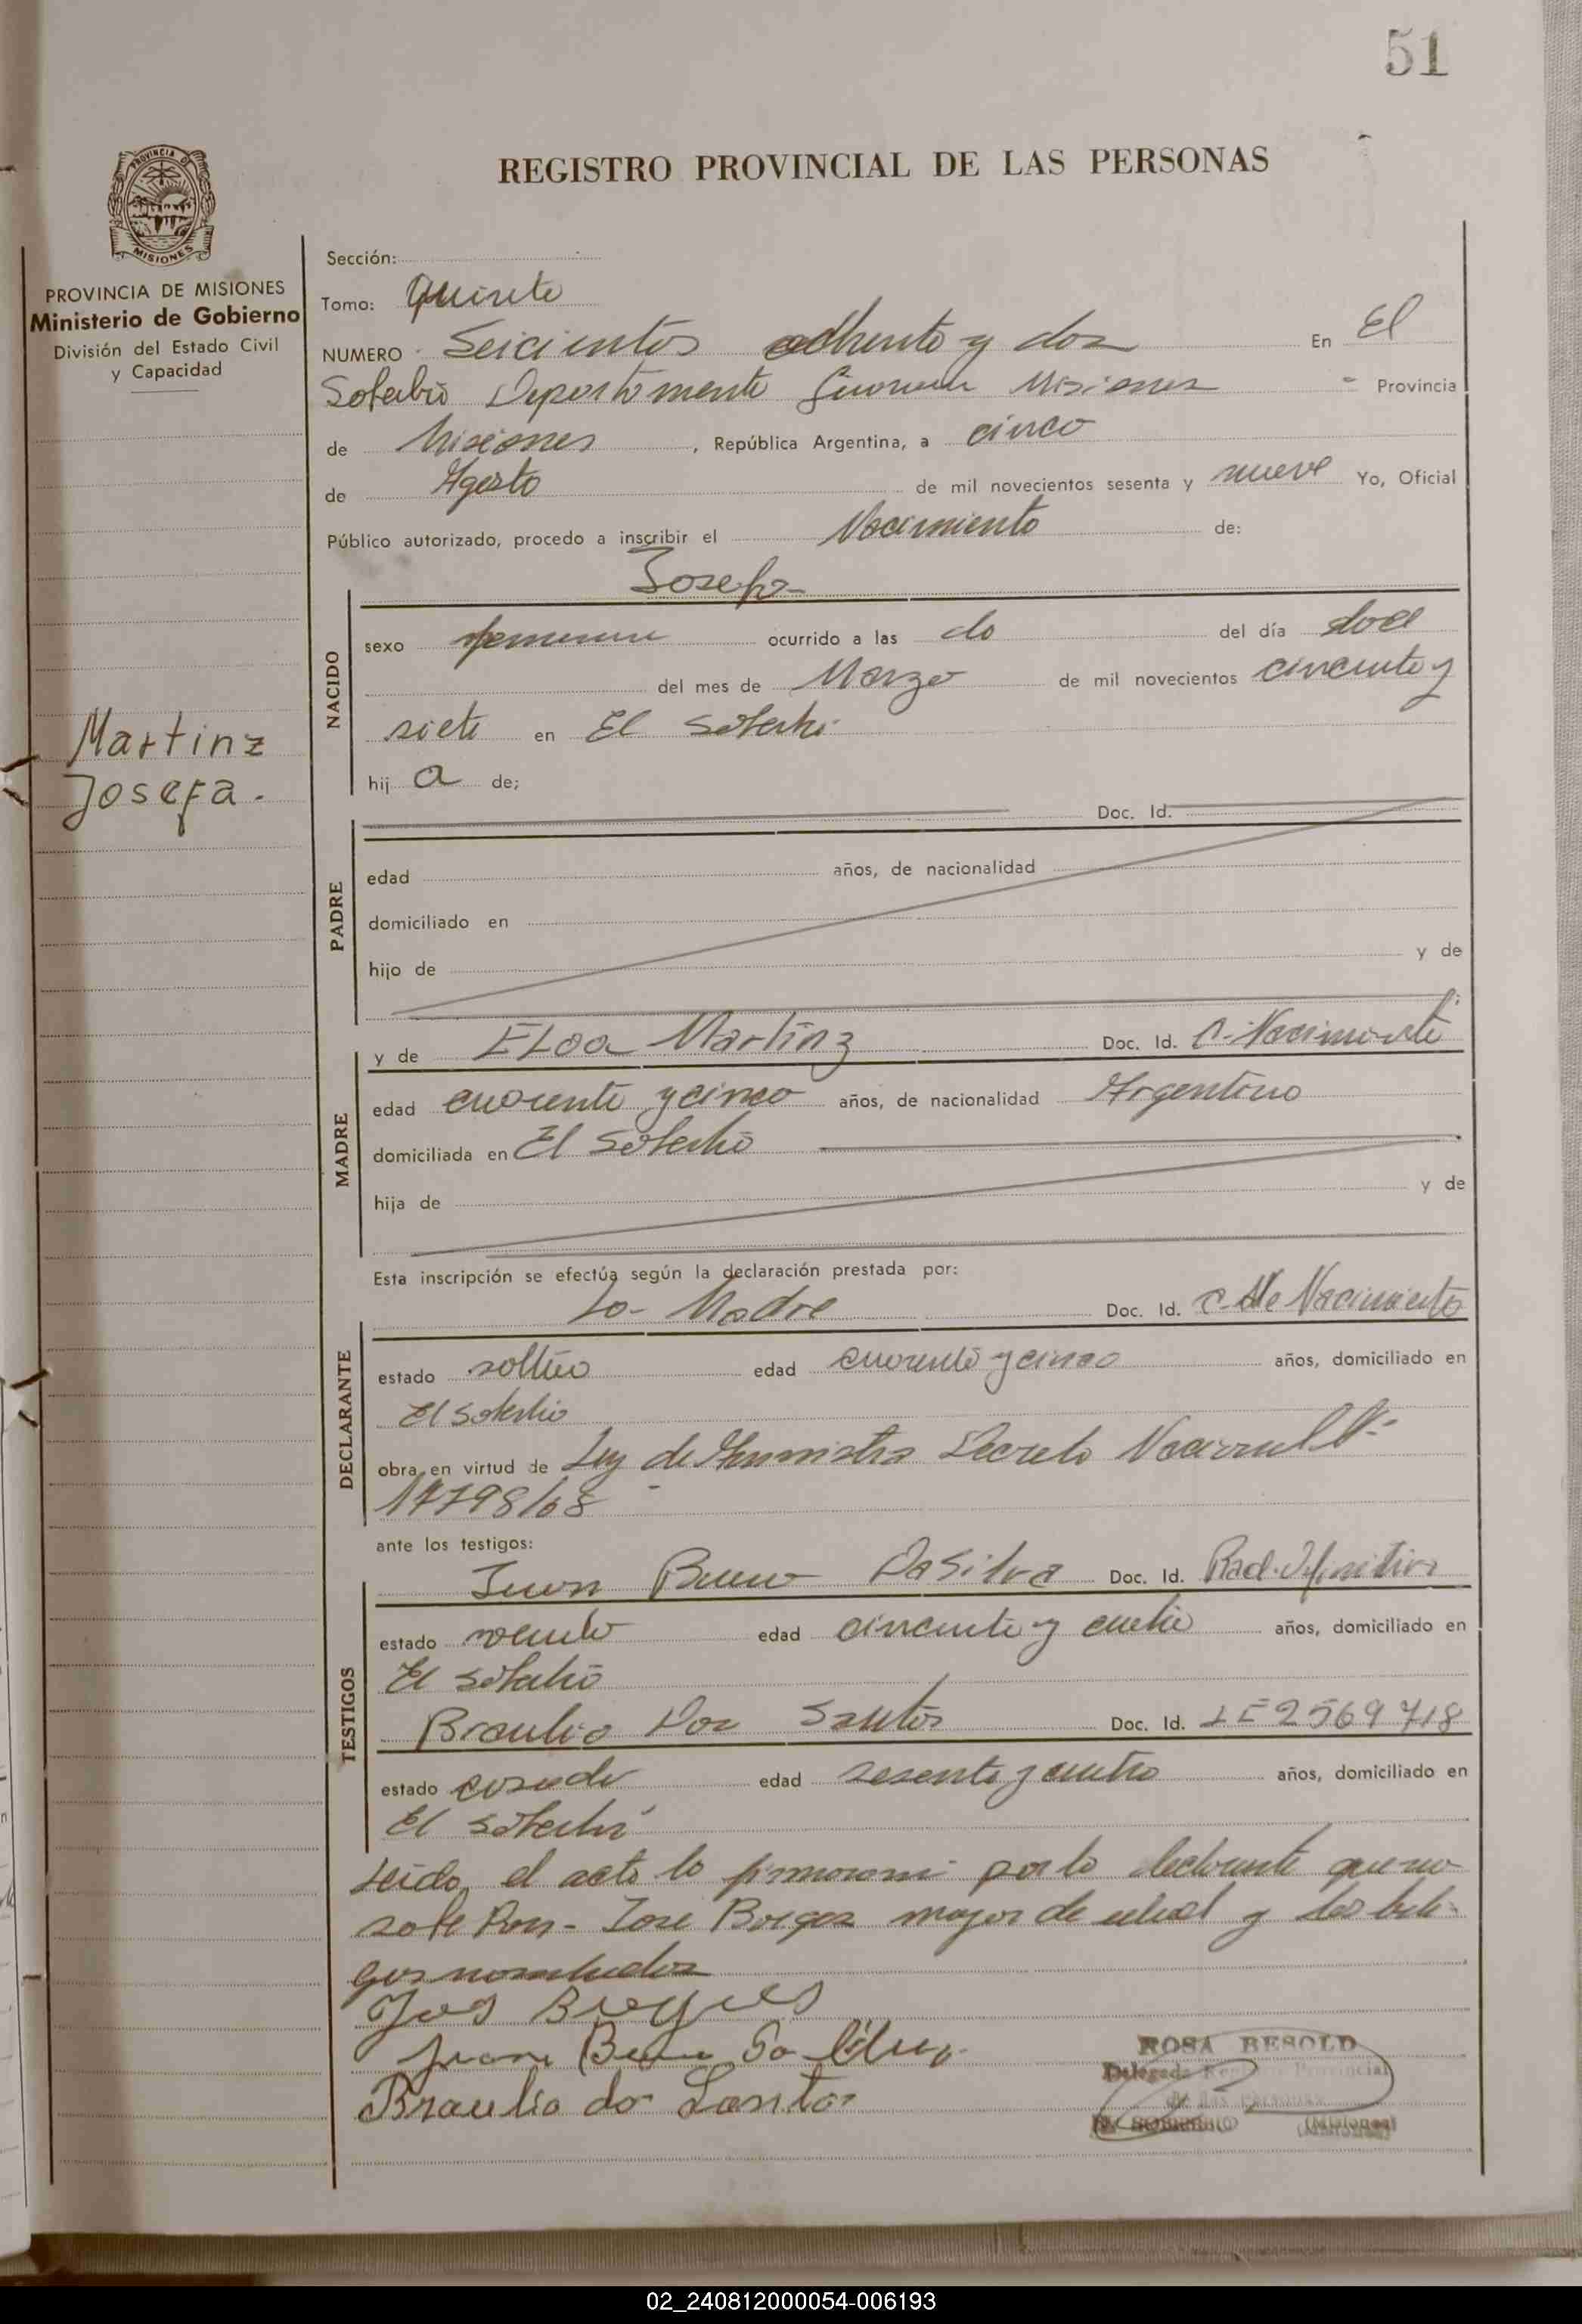 51
REGISTRO PROVINCIAL DE LAS PERSONAS
PROVINCIA DE MISIONES
PROVINCIA DE MISIONES
Ministerio de Gobierno
División del Estado Civil
y Capacidad
Martinz
Josefa.
Sección:
Tomo: Quinto
NUMERO Seicientos ochenta y dos En El
Soberbio Departamento Guarani Misiones Provincia
de Misiones, República Argentina, a cinco
de Agosto de mil novecientos sesenta y nueve Yo, Oficial
Público autorizado, procedo a inscribir el Nacimiento de:
Josefa-
NACIDO
sexo femenino ocurrido a las del día doce
del mes de Marzo de mil novecientos cincuenta y
siete en El Soberbio
hij a de;
PADRE
Doc. Id.
edad años, de nacionalidad
domiciliado en
hijo de y de
MADRE
y de Eloa Martinz Doc. Id. C. Nacimiento
edad cuarenta y cinco años, de nacionalidad Argentina
domiciliada en El Soberbio
hija de y de
Esta inscripción se efectúa según la declaración prestada por:
La Madre Doc. Id. C. de Nacimiento
DECLARANTE
estado soltera edad cuarenta y cinco años, domiciliado en
El Soberbio
obra en virtud de Ley de Amnistia Decreto Nacional Nº
17798/68
ante los testigos:
TESTIGOS
Juan Bueno DaSilva Doc. Id. Rad. Definitiva
estado viudo edad cincuenta y cuatro años, domiciliado en
El Soberbio
Braulio Dos Santos Doc. Id. LE 2569718
estado casado edad sesenta y cuatro años, domiciliado en
El Soberbio
Leido el acta lo firmaron por la declarante que no
sabe Don- Jose Borges mayor de edad y los testi-
gos nombrados
Jos Borges
Juan Bueno Da Silva
Braulio do Santos
ROSA BESOLD
Delegada Registro Provincial
de las Personas
El Soberbio (Misiones)
02_240812000054-006193